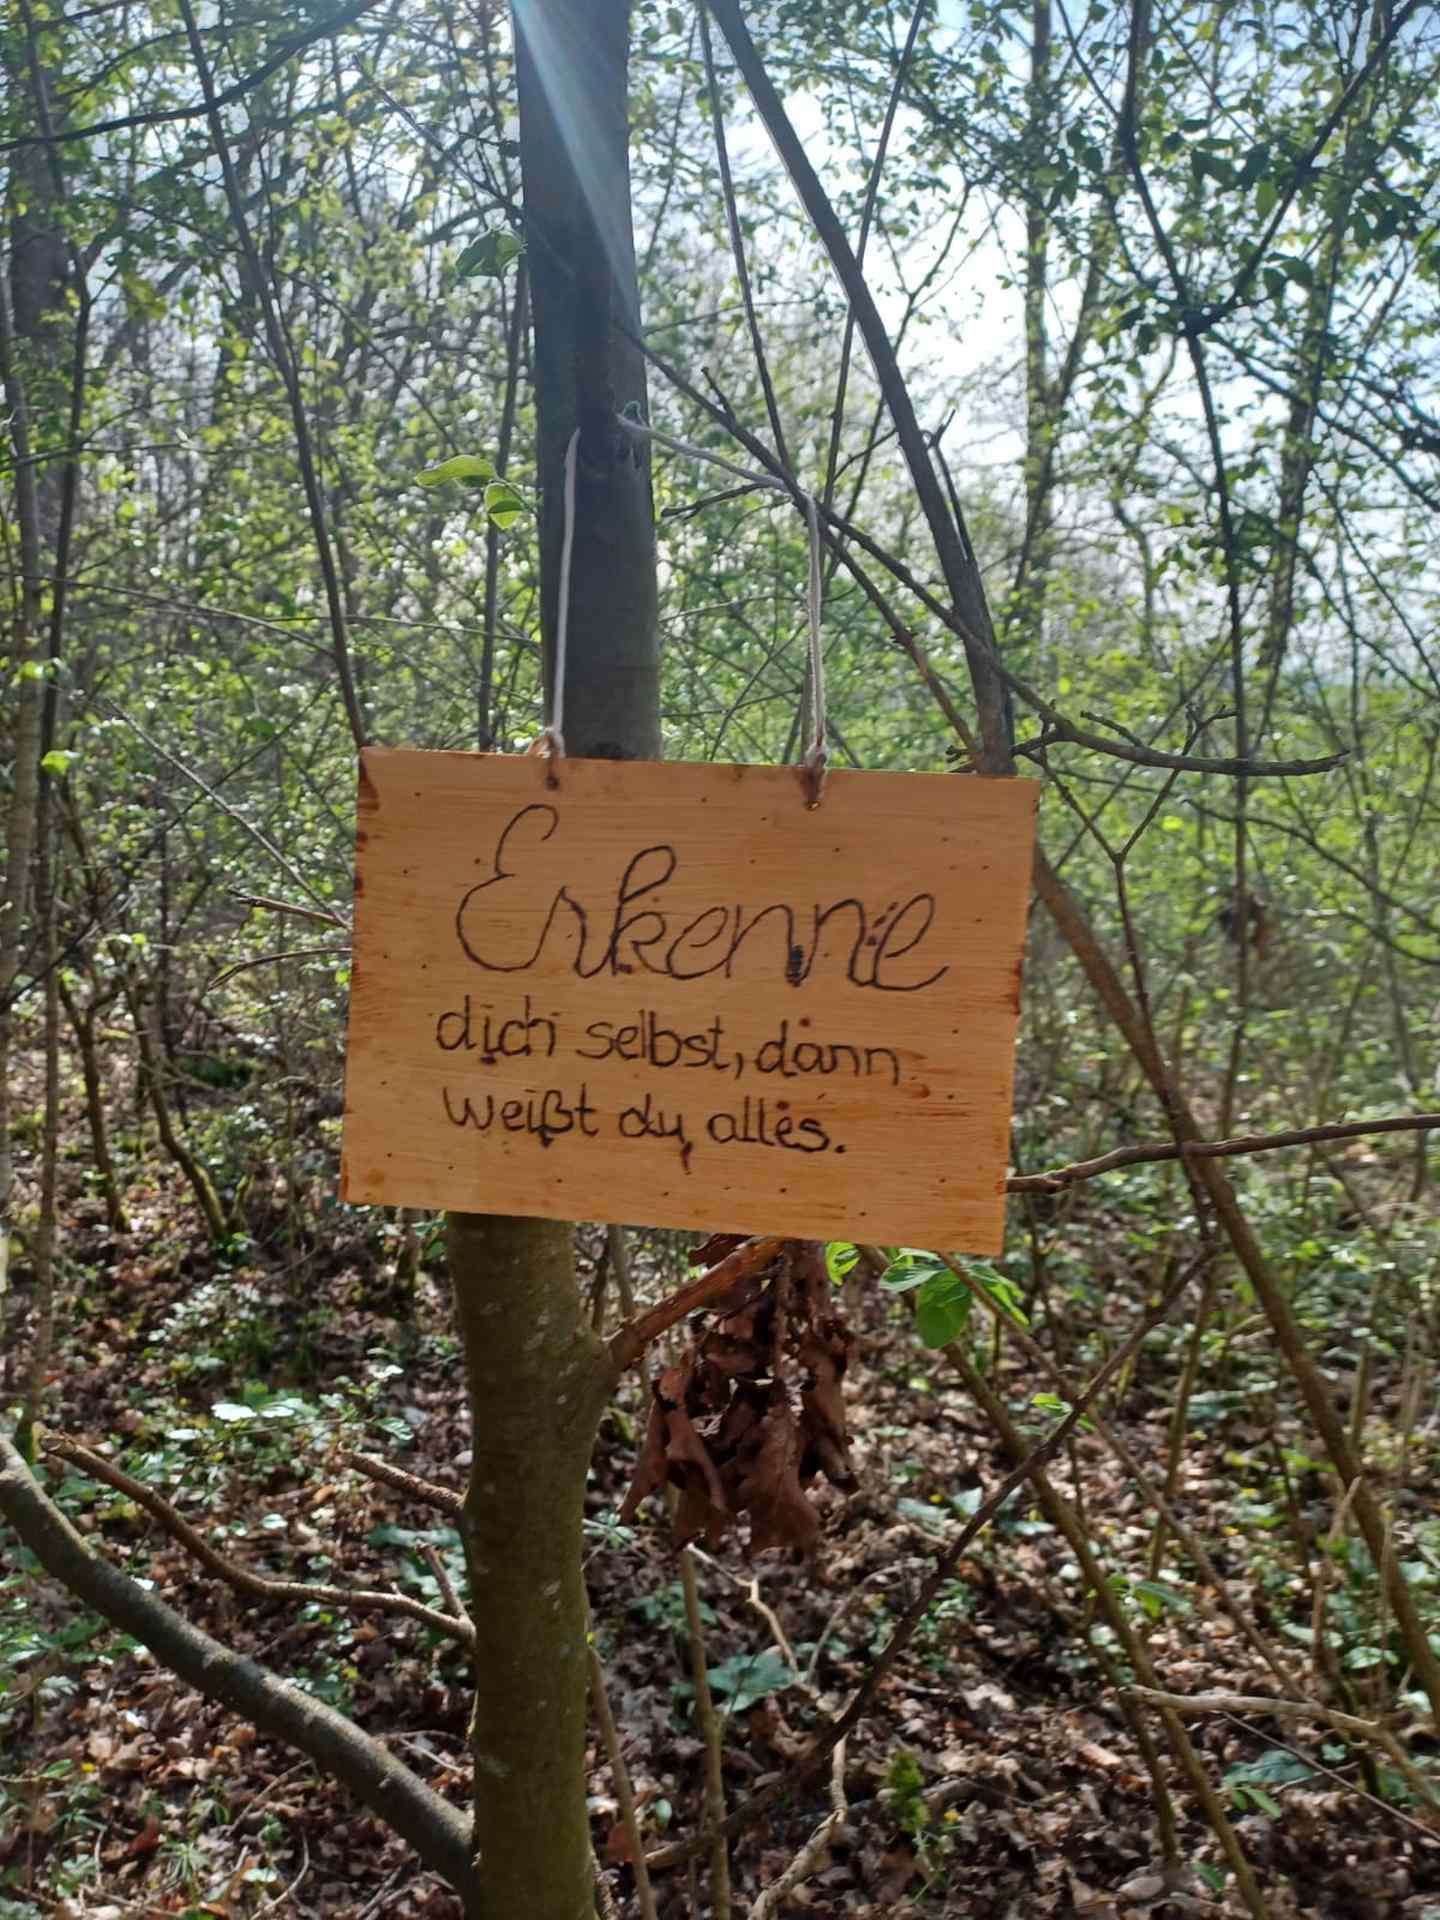 Erkenne
dich selbst, dann
weißt du alles.